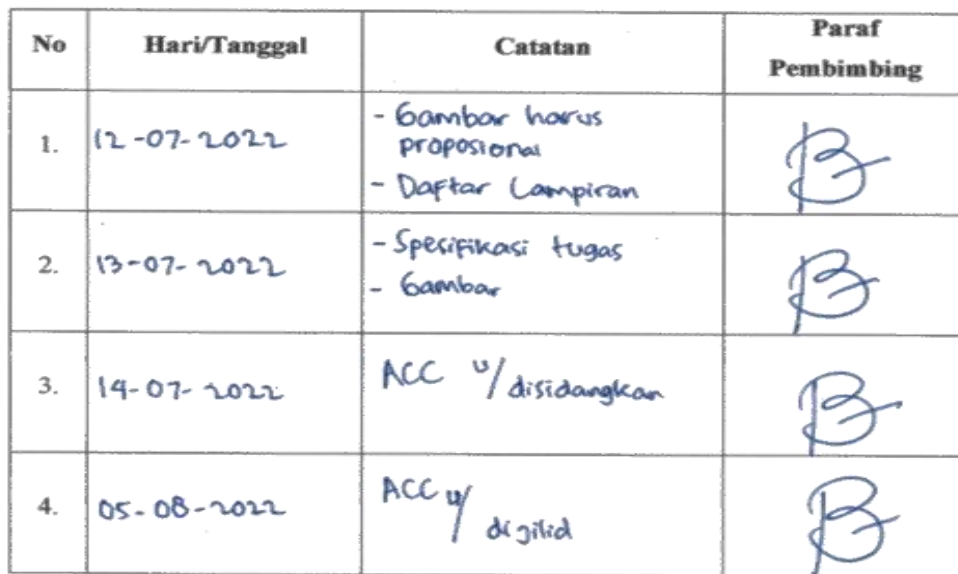 No Hari/Tanggal Catatan Paraf Pembimbing
1. 12-07-2022 - Gambar harus
proposional
- Daftar Lampiran
2. 13-07-2022 - Spesifikasi tugas
- Gambar
3. 14-07-2022 ACC u/ disidangkan
4. 05-08-2022 ACC u/ dijilid